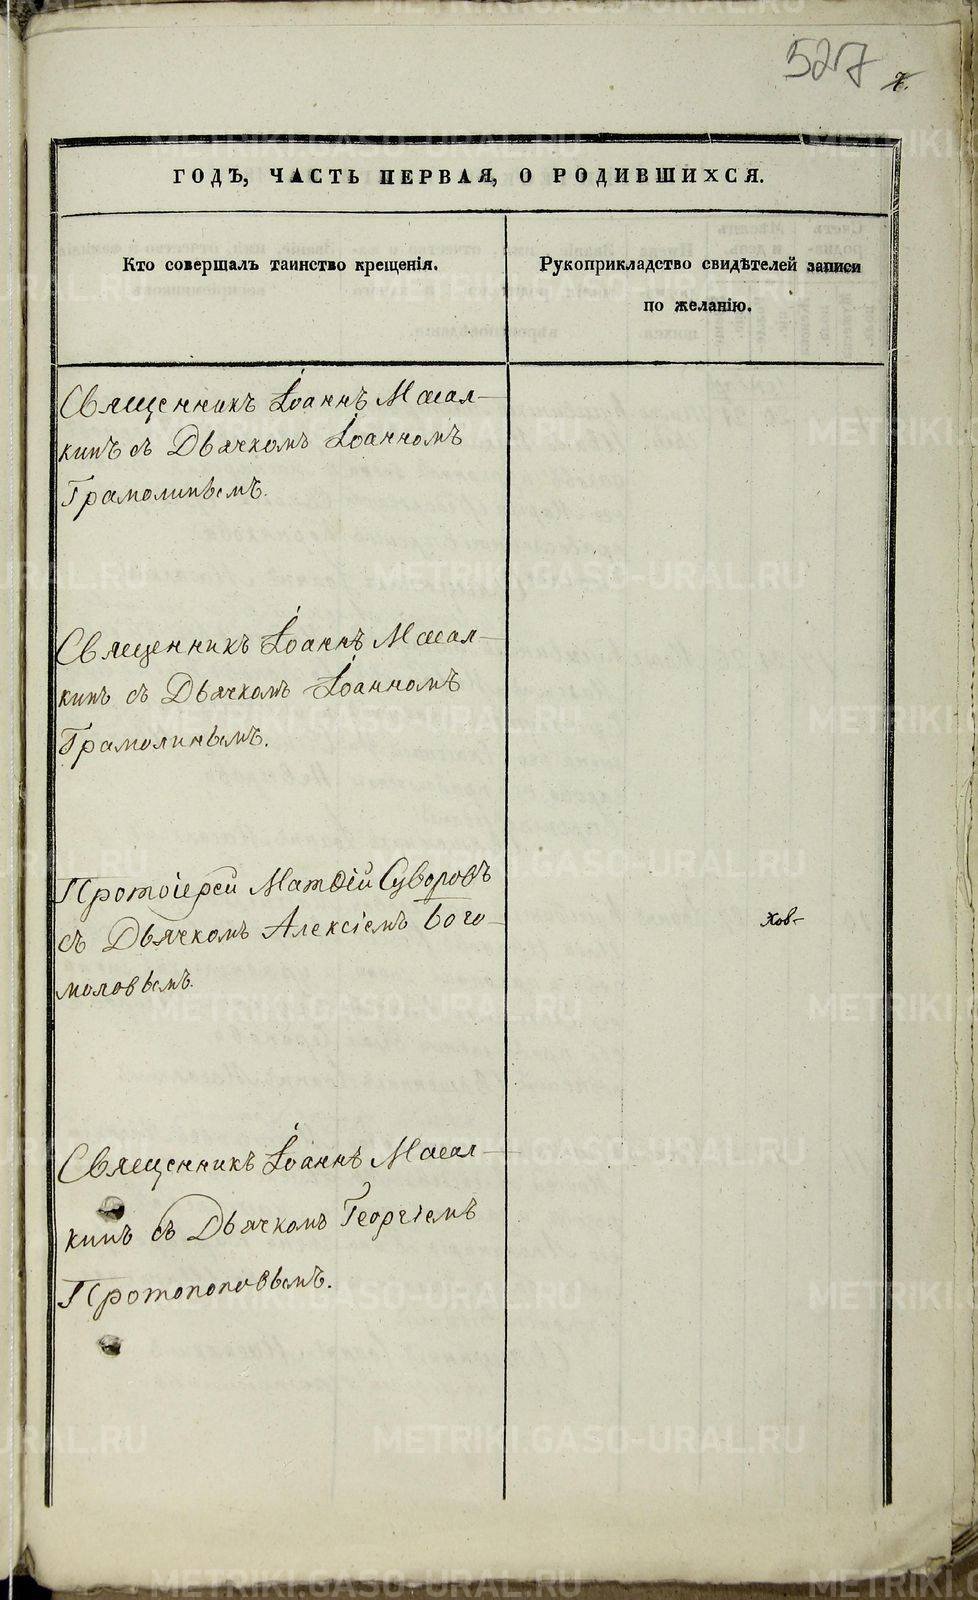 527
ГОДЪ, ЧАСТЬ ПЕРВАЯ, О РОДИВШИХСЯ.
Кто совершалъ таинство крещенія.
Рукоприкладство свидѣтелей записи
по желанію.
Священникъ Іоаннъ Масал-
кинъ съ Дьячкомъ Іоанномъ
Грамолинымъ.
Священникъ Іоаннъ Масал-
кинъ съ Дьячкомъ Іоанномъ
Грамолинымъ.
Протоіерей Матѳій Суворовъ
съ Дьячкомъ Алексіемъ Бого-
моловымъ.
хов-
Священникъ Іоаннъ Масал-
кинъ съ Дьячкомъ Георгіемъ
Протопоповымъ.
METRIKI.GASO-URAL.RU